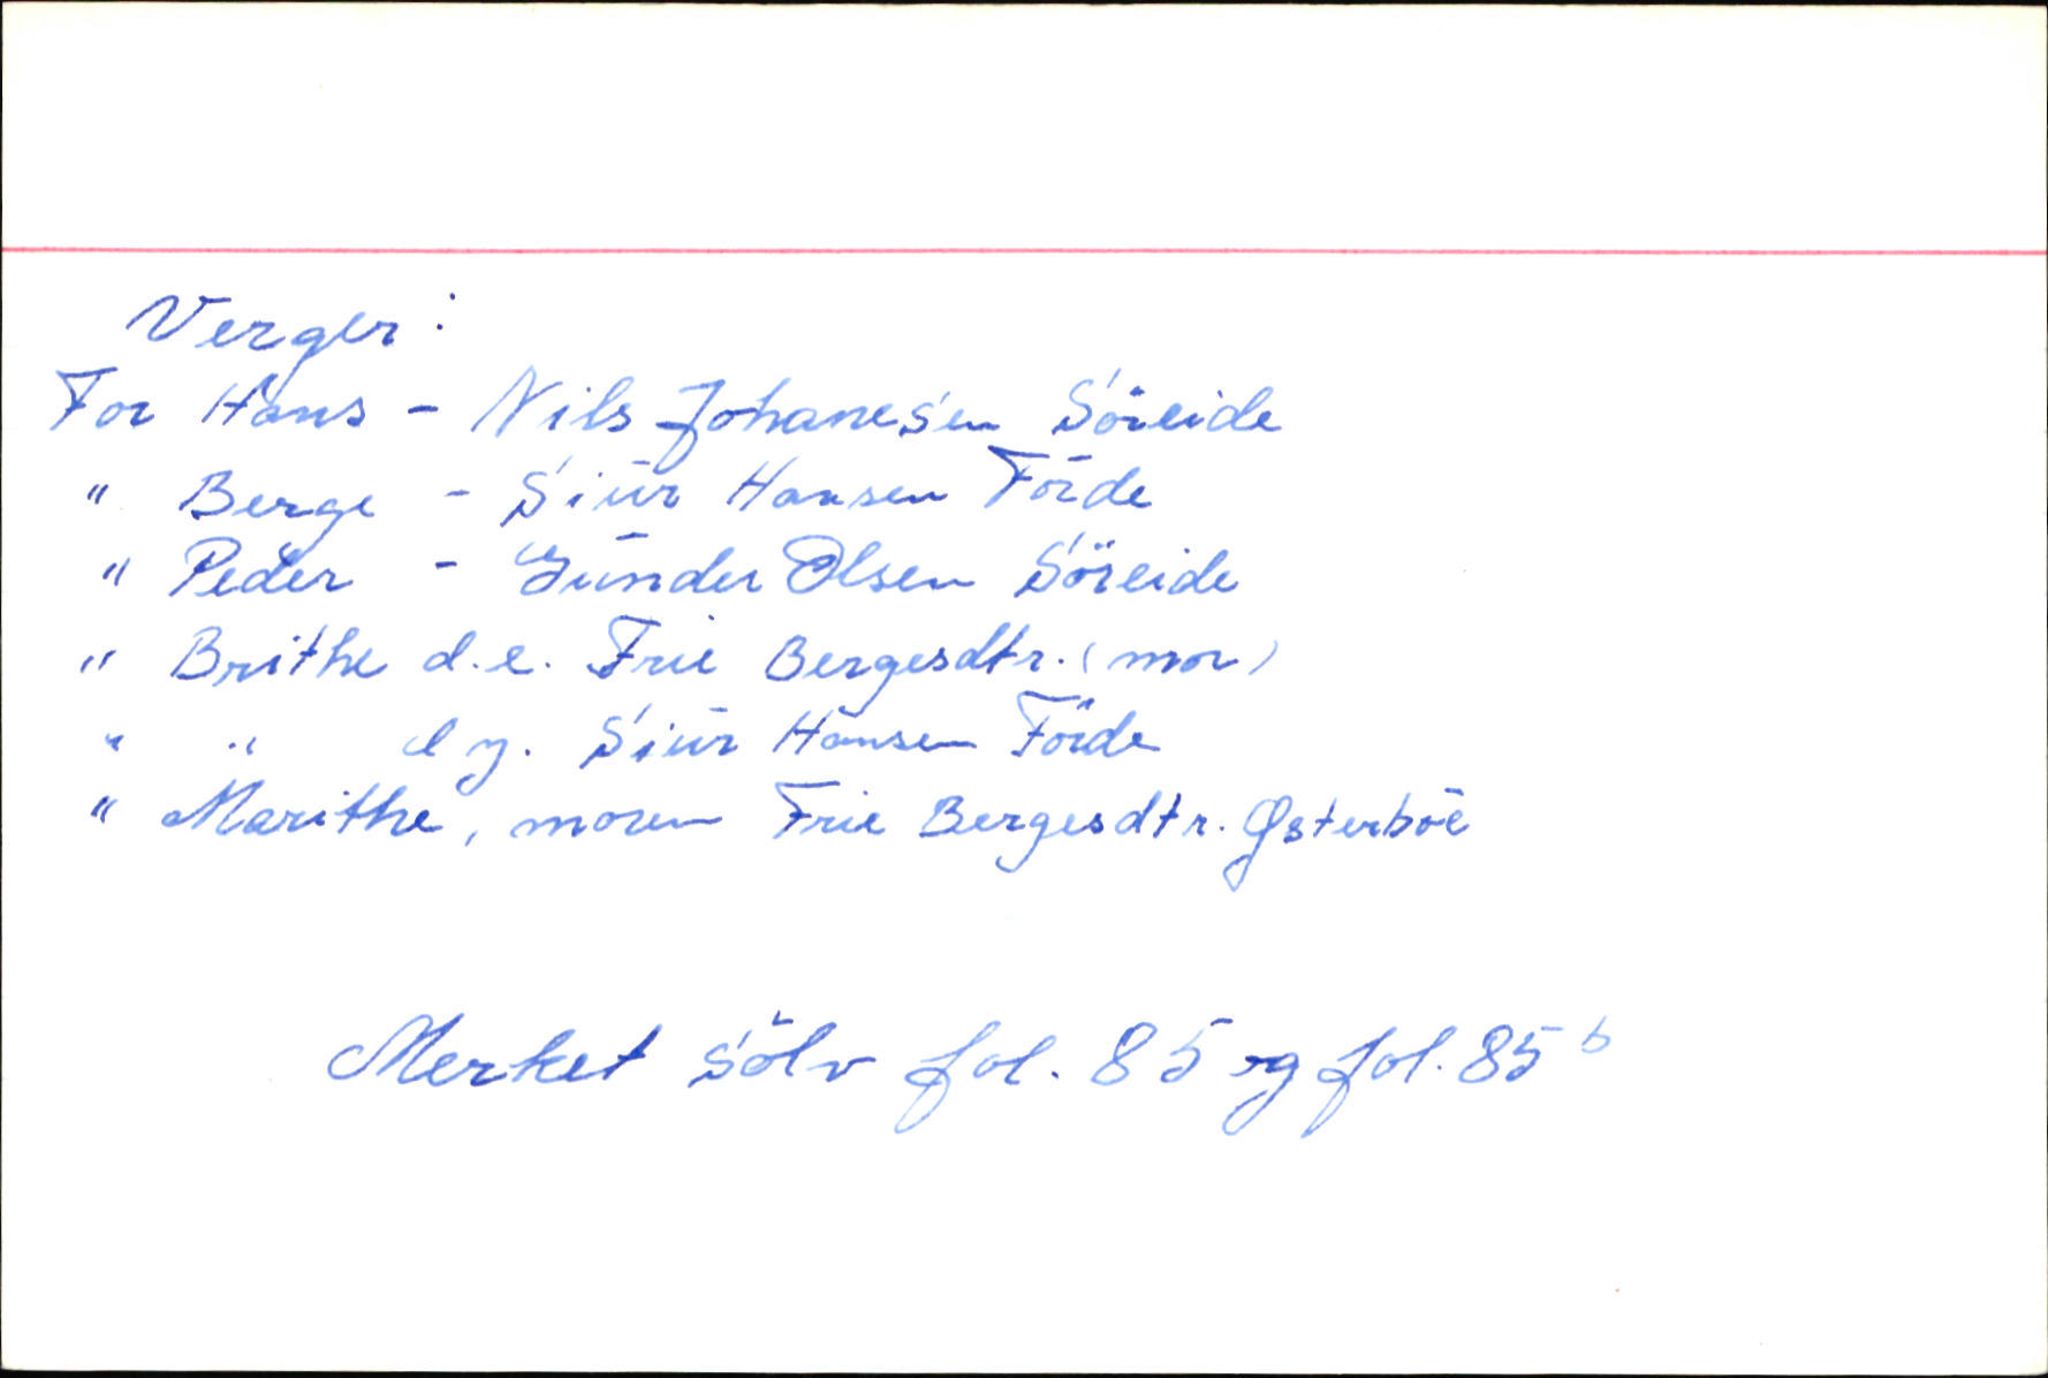 Verger:
For Hans - Nils Johanesen Söreide
" Berge - Siur Hansen Förde
" Peder - Gunder Olsen Söreide
" Brithe d.e. Frie Bergesdtr. (mor)
" " d y. Siur Hansen Förde
" Marithe, moren Frie Bergesdtr. Østerböe
Merket sölv fol. 85 og fol. 85 b